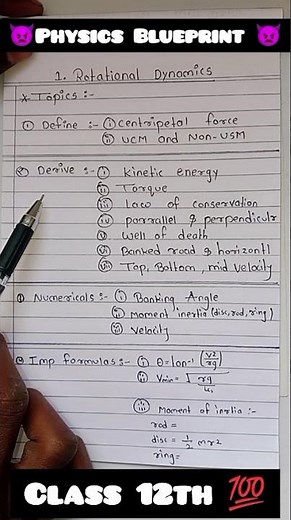 😈 PHYSICS BLUEPRINT 😈
1. Rotational Dynamics
* Topics :-
① Define :- ⓘ centripetal force
ⅱ UCM and Non-USM
② Derive :- ⓘ kinetic energy
ⅱ Torque
ⅲ law of conservation
ⅳ parrallel & perpendiculr
ⅴ well of death
ⅵ Banked road & horizontl
ⅶ Top, Bottom, mid velocity
① Numericals :- ⓘ Banking Angle
ⅱ moment inertia (disc, rod, ring)
ⅲ velocity
② Imp formulas :- ⓘ θ = tan⁻¹ (v²/rg)
ⅱ Vmin = √ rg/us
ⅲ Moment of inertia :-
rod =
disc = 1/2 mr²
ring =
CLASS 12TH 💯